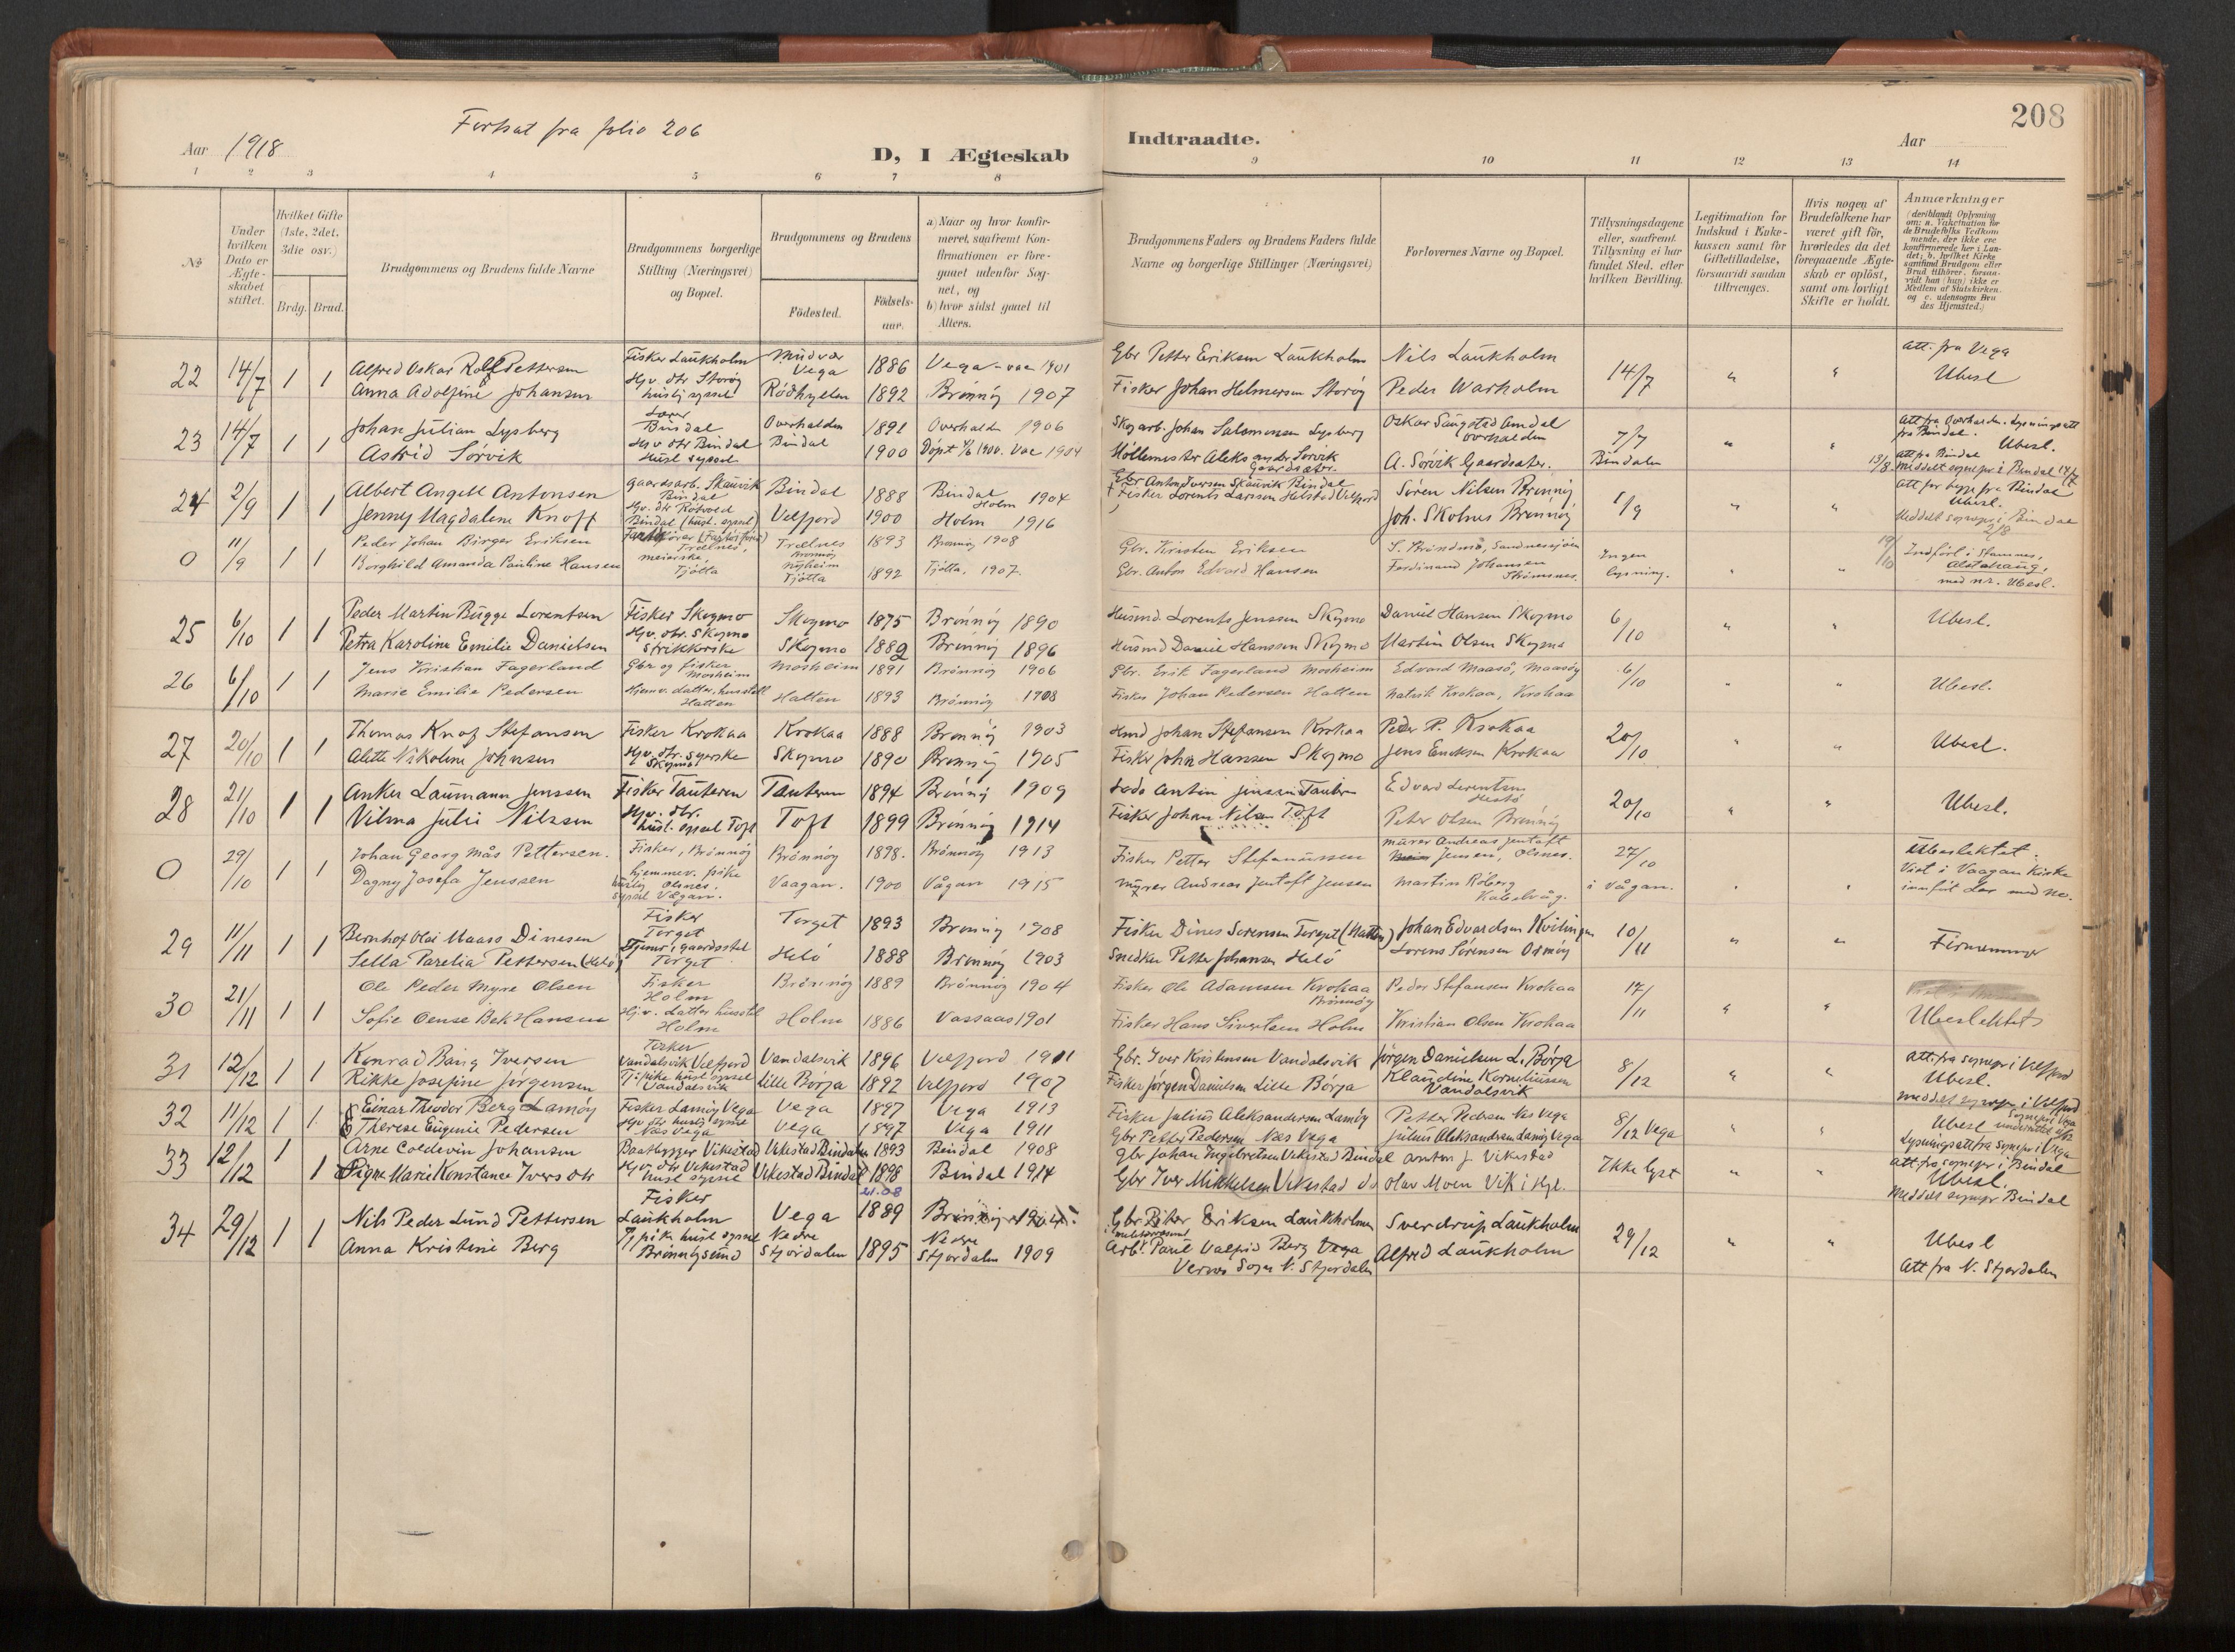 208
Fortsat fra folio 206
Aar 1918
D, I Ægteskab
Indtraadte.
Aar
1 2 3 4 5 6 7 8 9 10 11 12 13 14
No
Under hvilken Dato er Ægteskabet stiftet.
Hvilket Gifte (1ste, 2det, 3die osv.)
Brdg. Brud.
Brudgommens og Brudens fulde Navne
Brudgommens borgerlige Stilling (Næringsvei) og Bopæl.
Brudgommens og Brudens
Födested.
Födsels-aar.
a) Naar og hvor konfirmeret, saafremt Konfirmationen er foregaaet udenfor Sognet, og
b) hvor sidst gaaet til Alters.
Brudgommens Faders og Brudens Faders fulde Navne og borgerlige Stillinger (Næringsvei)
Forlovernes Navne og Bopæl.
Tillysningsdagene eller, saafremt Tillysning ei har fundet Sted, efter hvilken Bevilling.
Legitimation for Indskud i Enkekassen samt for Giftetilladelse, forsaavidt saadan tiltrænges.
Hvis nogen af Brudefolkene har været gift för, hvorledes da det foregaaende Ægteskab er oplöst, samt om lovligt Skifte er holdt.
Anmærkninger
(deriblandt Oplysning om: a. Vakcination for de Brudefolks Vedkommende, der ikke ere konfirmerede her i Landet; b. hvilket Kirkesamfund Brudgom eller Brud tilhörer, forsaavidt han (hun) ikke er Medlem af Statskirken, og c. udensogns Brudes Hjemsted.)
22 14/7 1 1 Alfred Oskar Rolf Pettersen Fisker Laukholm Mudvær Vega 1886 Vega - vac 1901 Gbr Petter Eriksen Laukholm Nils Laukholm 14/7 " " Att. fra Vega
Anna Adolfine Johansen Hjv. dtr Storöy huslig syssel Rödhyllen 1892 Brönnöy 1907 Fisker Johan Helmersen Storöy Peder Warholm Ubesl
23 14/7 1 1 Johan Julian Lysberg Bindal Overhalden 1891 Overhalden 1906 Skogarb. Johan Salomonsen Lysberg Oskar Amdal Overhalden 7/7 Bindalen " " Att fra Overhalden. Lysningsatt fra Bindal. Ubesl.
Astrid Sörvik Hjv dtr Bindal Husl syssel Bindal 1900 Döpt 1900. Vac 1904 Möllemester Aleksander Sörvik Gaardsæter. A. Sörvik Gaardsæter. Att fra Bindal
13/8. Meddelt sognepr i Bindal
24 2/9 1 1 Albert Angell Antonsen Gaardsarb. Skauvik Bindal Bindal 1888 Bindal Holm 1904 Gbr Anton Iversen Skauvik Bindal Sören Nilsen Brönnöy 1/9 " " Att for begge fra Bindal
Jenny Magdalene Knoff Hjv. dtr Bindal (husl. syssel) Velfjord 1900 Holm 1916 + Fisker Lorents Larssen Hilstad Velfjord Joh. Skolnes Brönnöy Ubesl. Meddelt sognepr i Bindal 2/8
0 11/9 1 1 Peder Johan Birger Eriksen Trælnes Trælnes Brönnöy 1893 Brönnöy 1908 Gbr. Kristen Eriksen Sandnessjöen Ingen lysning. 19/10 Indförl i Stamnes, Alstahaug,
Borghild Amanda Pauline Hansen meierske Tjötta Nyheim Tjötta 1892 Tjötta. 1907. Gbr. Anton Edvard Hansen Ferdinand Johansen Strömsnes. med nr. Ubesl.
25 6/10 1 1 Peder Martin Bugge Lorentsen Fisker Skogmo Skogmo 1875 Brönnöy 1890 Husmd Lorents Jenssen Skogmo Daniel Hansen Skogmo 6/10 " " Ubesl.
Petra Karoline Emilie Danielsen Hjv. dtr. Skogmo Strikkerske Skogmo 1882 Brönnöy 1896 Husmd Daniel Hanssen Skogmo Martin Olsen Skogmo
26 6/10 1 1 Jens Kristian Fagerland Gbr og fisker Mosheim Mosheim 1891 Brönnöy 1906 Gbr. Erik Fagerland Mosheim Edvard Maasö, Maasöy 6/10 " " Ubesl.
Marie Emilie Pedersen Hjemv. datter, husstell Hatten Hatten 1893 Brönnöy 1908 Fisker Johan Pedersen Hatten Krokaa, Krokaa
27 20/10 1 1 Thomas Knof Stefansen Fisker Krokaa Krokaa 1888 Brönnöy 1903 Hmd Johan Stefansen Krokaa Peder P. Krokaa 20/10 " " Ubesl.
Alette Nikoline Johnsen Hjv. dtr. syerske Skogmo Skogmo 1890 Brönnöy 1905 Fisker John Hansen Skogmo Jens Eriksen Krokaa
28 21/10 1 1 Anker Laumann Jenssen Fisker Tauteren Tauteren 1894 Brönnöy 1909 Antin Jensen Tauteren Edvard Lorentsen 20/10 " " Ubesl.
Vilma Juli Nilssen Hjv. dtr. husl. syssel Toft Toft 1899 Brönnöy 1914 Fisker Johan Nilsen Toft Peter Olsen Brönnöy
0 29/10 1 1 Johan Georg Mås Pettersen. Fisker, Brönnöy Brönnöy 1898. Brönnöy 1913 Fisker Petter Stefanussen murer Andreas Jentoft Jensen, Olsnes. 27/10 i Vågan. " " Ubeslektet.
Dagny Josefa Jenssen hjemmev. pike huslig syssel Olsnes. Vågan. Vaagan. 1900 Vågan 1915 Murer Andreas Jentoft Jensen Martin Röberg Kabelvåg. Viet i Vaagan Kirke innfört der med no.
29 11/11 1 1 Bernhof Olai Maass Dinesen Fisker Torget Torget 1893 Brönnöy 1908 Fisker Dines Sörensen Torget (Hatten) Johan Edvardsen 10/11 " " Firmenninger
Sella Parelia Pettersen (Helö) gaardsstel Torget Helö 1888 Brönnöy 1903 Snedker Petter Johansen Helö Lorens Sörensen
30 21/11 1 1 Ole Peder Myre Olsen Fisker Holm Brönnöy 1889 Brönnöy 1904 Fisker Ole Adamsen Krokaa Brönnöy Peder Stefansen Krokaa 17/11 " " Ubeslektet
Sofie Oense Bek Hansen Hjv. datter husstel Holm Holm 1886 Vassaas 1901 Fisker Hans Sivertsen Holm Kristian Olsen Krokaa
31 12/12 1 1 Konrad Bang Iversen Fisker Vandalsvik Velfjord Vandalsvik 1896 Velfjord 1911 Gbr. Iver Kristensen Vandalsvik Jörgen Danielsen L. Börja 8/12 " " Att. fra sognepr i Velfjord
Rikke Josefine Jörgensen Tj. pike husl syssel Vandalsvik Lille Börja 1892 Velfjord 1907 Fisker Jörgen Danielsen Lille Börja Klaudine Korneliussen Vandalsvik Ubesl. Meddelt sognepr. i Velfjord
32 11/12 1 1 Einar Theodor Berg Lamöy Fisker Lamöy Vega Vega 1897 Vega 1913 Fisker Julius Aleksandersen Lamöy Petter Pedersen Næs Vega 8/12 Vega " " Ubesl
Therese Eugenie Pedersen Hjv dtr huslig syssel Næs Vega Vega 1897 Vega 1911 Gbr Petter Pedersen Næs Vega Julius Aleksandersen Lamöy Vega Lysningsatt fra sognepr i Vega
33 12/12 1 1 Arne Coldevin Johansen Baatbygger Vikestad Vikestad Bindalen 1893 Bindal 1908 Gbr Johan Ingebretsen Vikestad Bindal Anton J. Vikestad Ikke lyst " " Att. fra sognepr i Bindal
Signe Marie Konstance Ivers dtr Hjv. dtr Vikestad husl syssel Vikestad Bindal 1898 Bindal 1914 Gbr Iver Mikkelsen Vikestad do Olav Moen Vik i Hgl. Ubesl. Meddelt sognepr Bindal
34 29/12 1 1 Nils Peder Lund Pettersen Fisker Laukholm Vega 1889 Brönnöy 1904 Gbr Peter Eriksen Laukholmen Sverdrup Laukholm 29/12 " " Ubesl
Anna Kristine Berg Tj pike husl syssel Brönnöysund Nedre Stjordalen 1895 Nedre Stjordalen 1909 Arb. Paul Valfrid Berg Værnes Sogn N. Stjordalen Alfred Laukholm Att fra N. Stjordalen